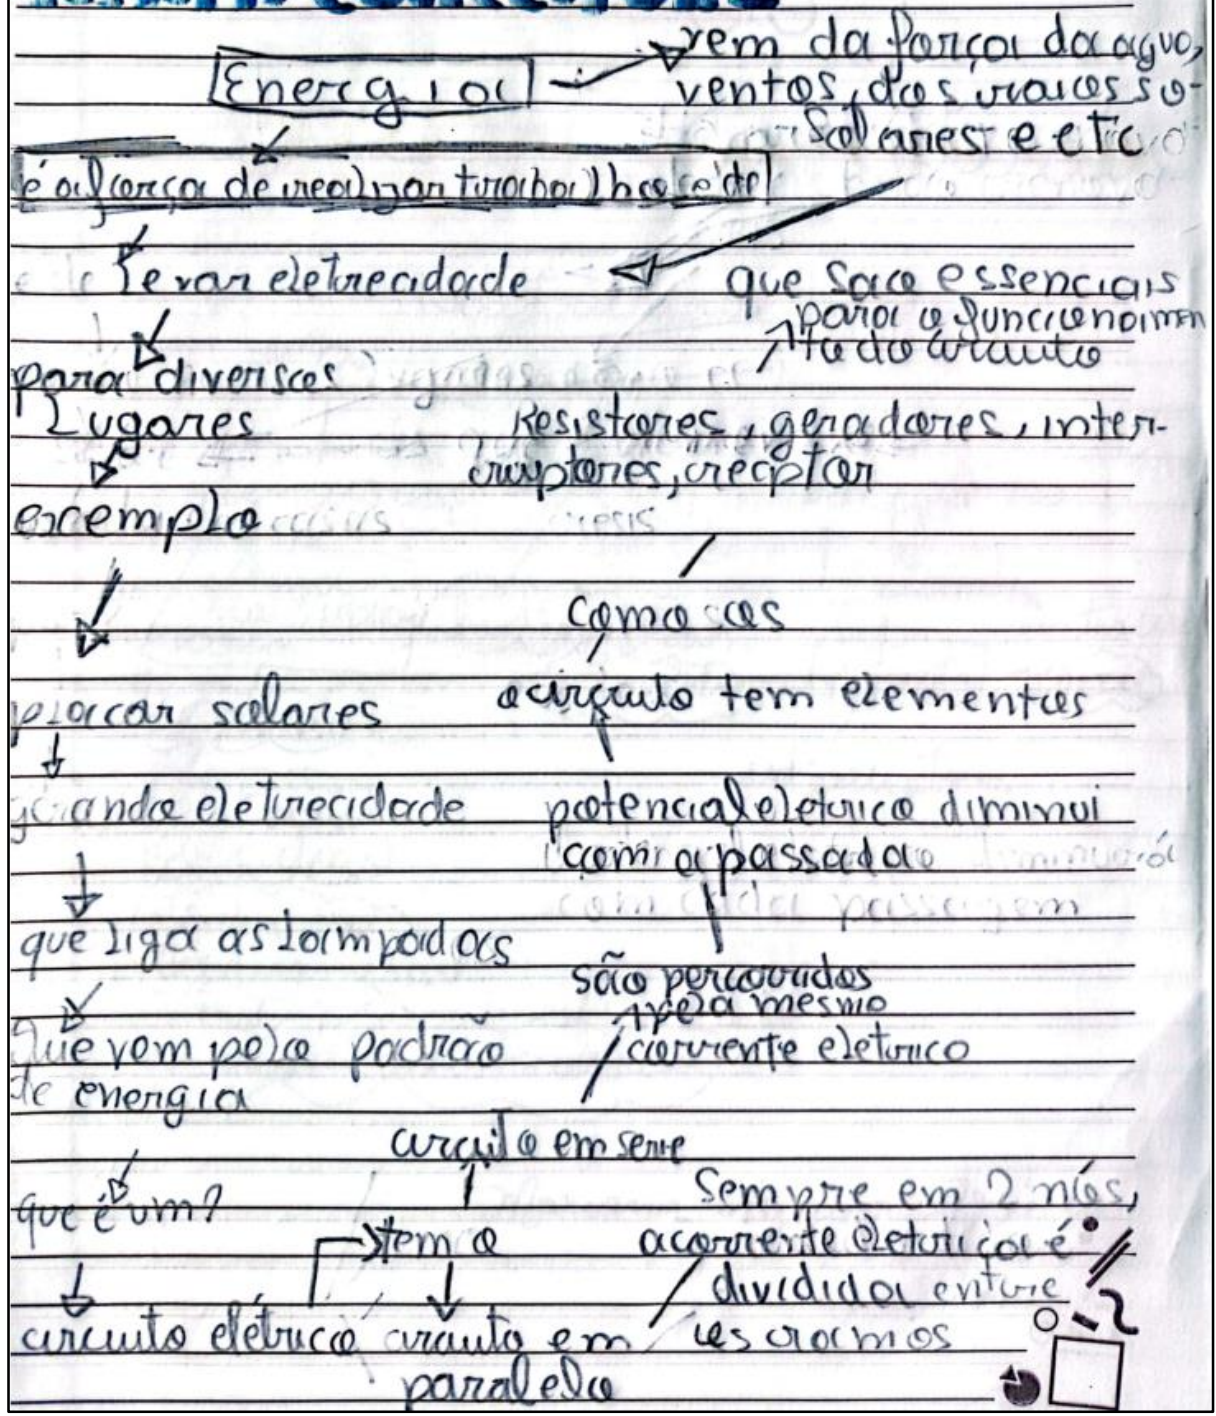 Energia
vem da força da agua,
ventos, dos raios so-
solares e etc
é a força de realizar trabalho
levar eletrecidade
que são essenciais
para o funcionamen
to do circuito
para diversos
Lugares
Resistores, geradores, inter-
ruptores, receptor
exemplo
como os
o circuito tem elementos
placar solares
gerando eletrecidade
potencial eletrico diminui
com a passada
que liga as lampadas
são percorridos
pela mesmo
corrente eletrico
Que vem pelo padrão
de energia
circuito em serie
que é um?
tem o
Sempre em 2 nós,
a corrente eletrica é
dividida entre
os ramos
circuito elétrico
circuito em
paralelo